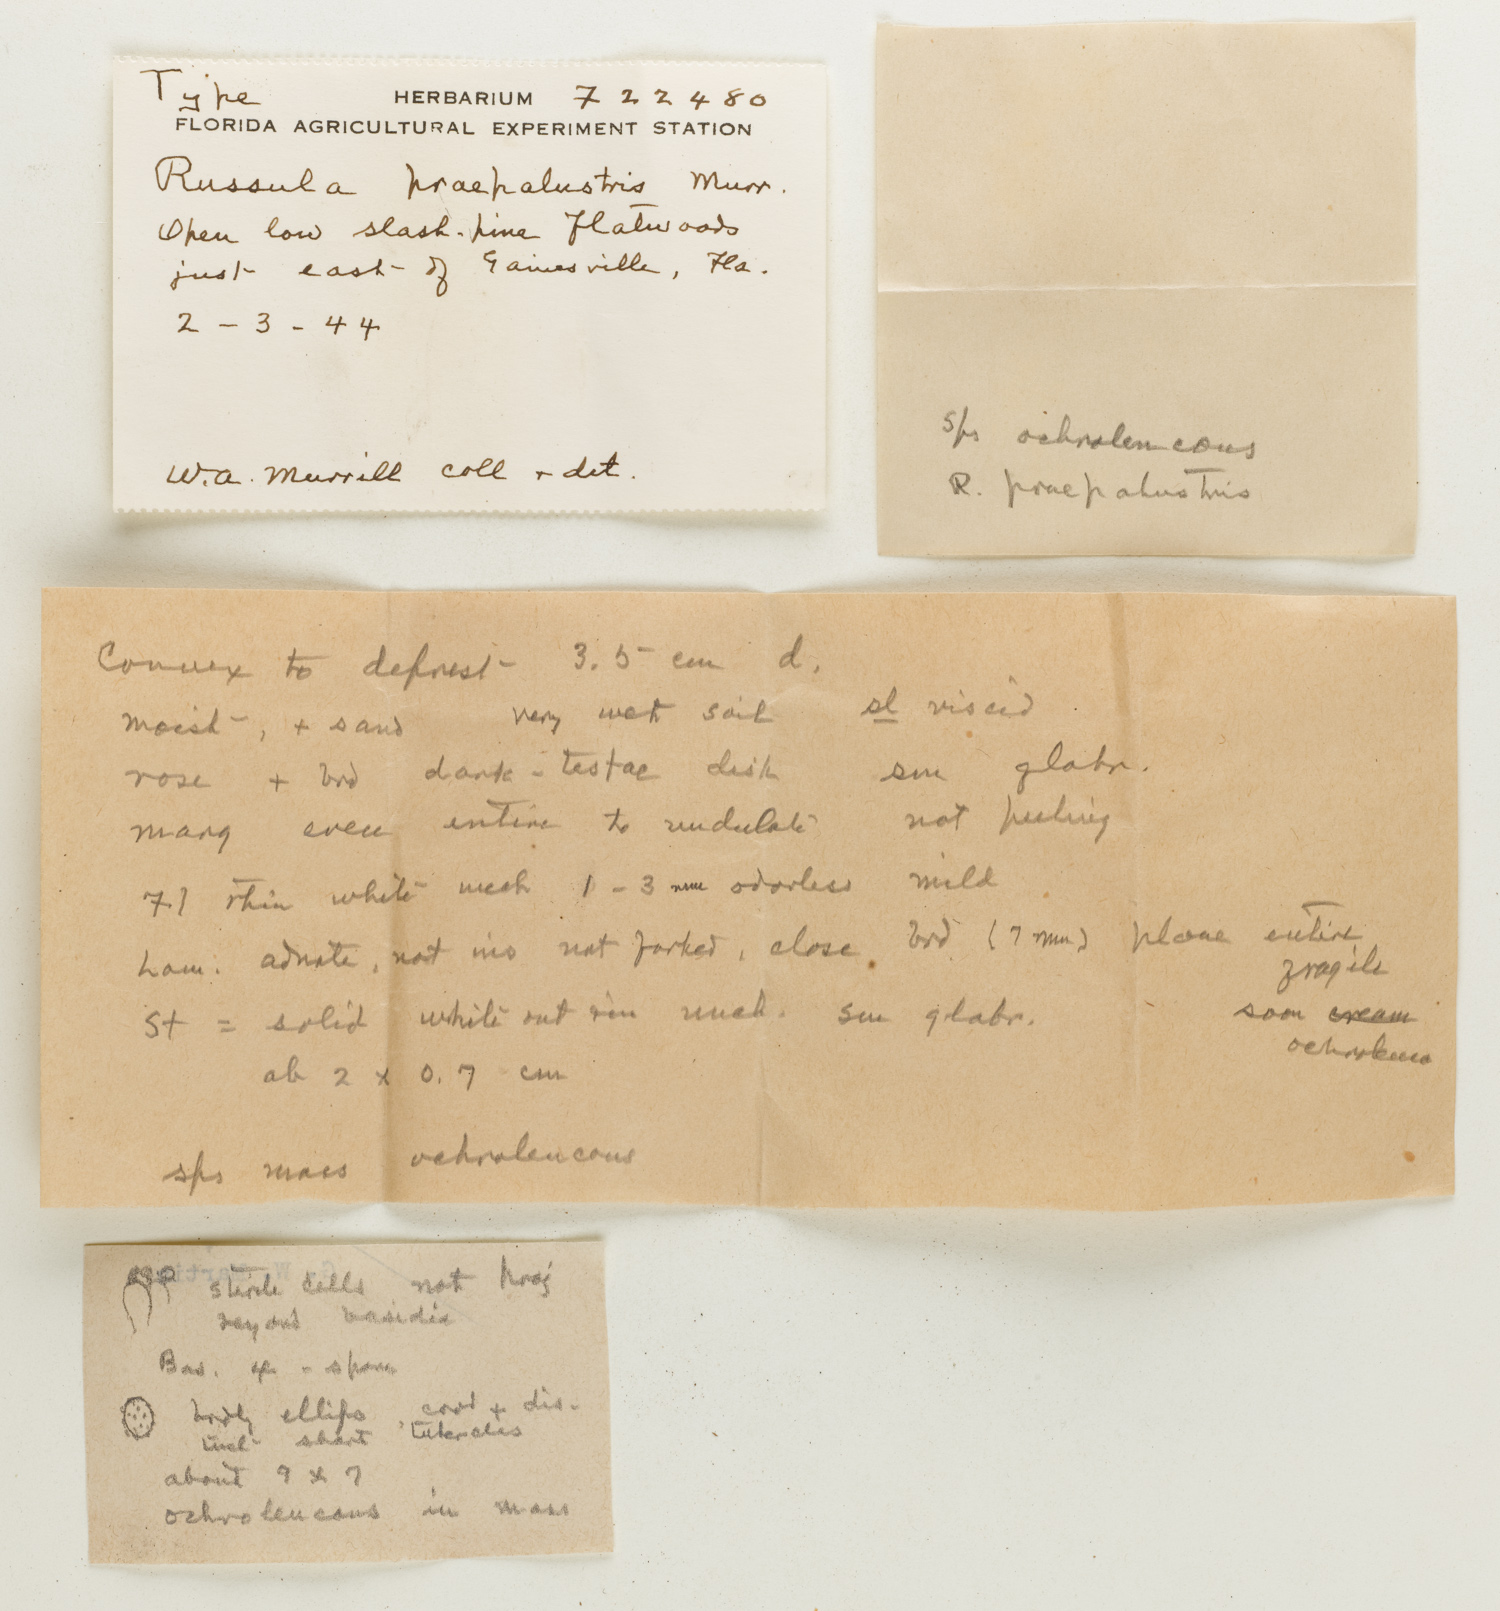 Type HERBARIUM 722480
FLORIDA AGRICULTURAL EXPERIMENT STATION
Russula praepalustris Murr.
Open low slash-pine flatwoods
just east of Gainesville, Fla.
2-3-44
W.A. Murrill coll + det.
sps ochroleucous
R. praepalustris
Convex to deprest 3.5 cm d.
moist, + sand very wet soil sl viscid
rose + brd dark-testac disk sm glabr.
marg even entire to undulate not peeling
Fl thin white unch 1-3 mm odorless mild
Lam: adnate, not ins not forked, close brd (7 mm) plane entire
fragile
St = solid white out rim unch. sm glabr. soon cream
ochroleuc
ab 2 x 0.7 cm
sps mass ochroleucous
sterile cells not proj
beyond basidia
Bas. 4 - spore
brdly ellips, cov'd + dis-
tinct short tubercles
about 9 x 7
ochroleucous in mass